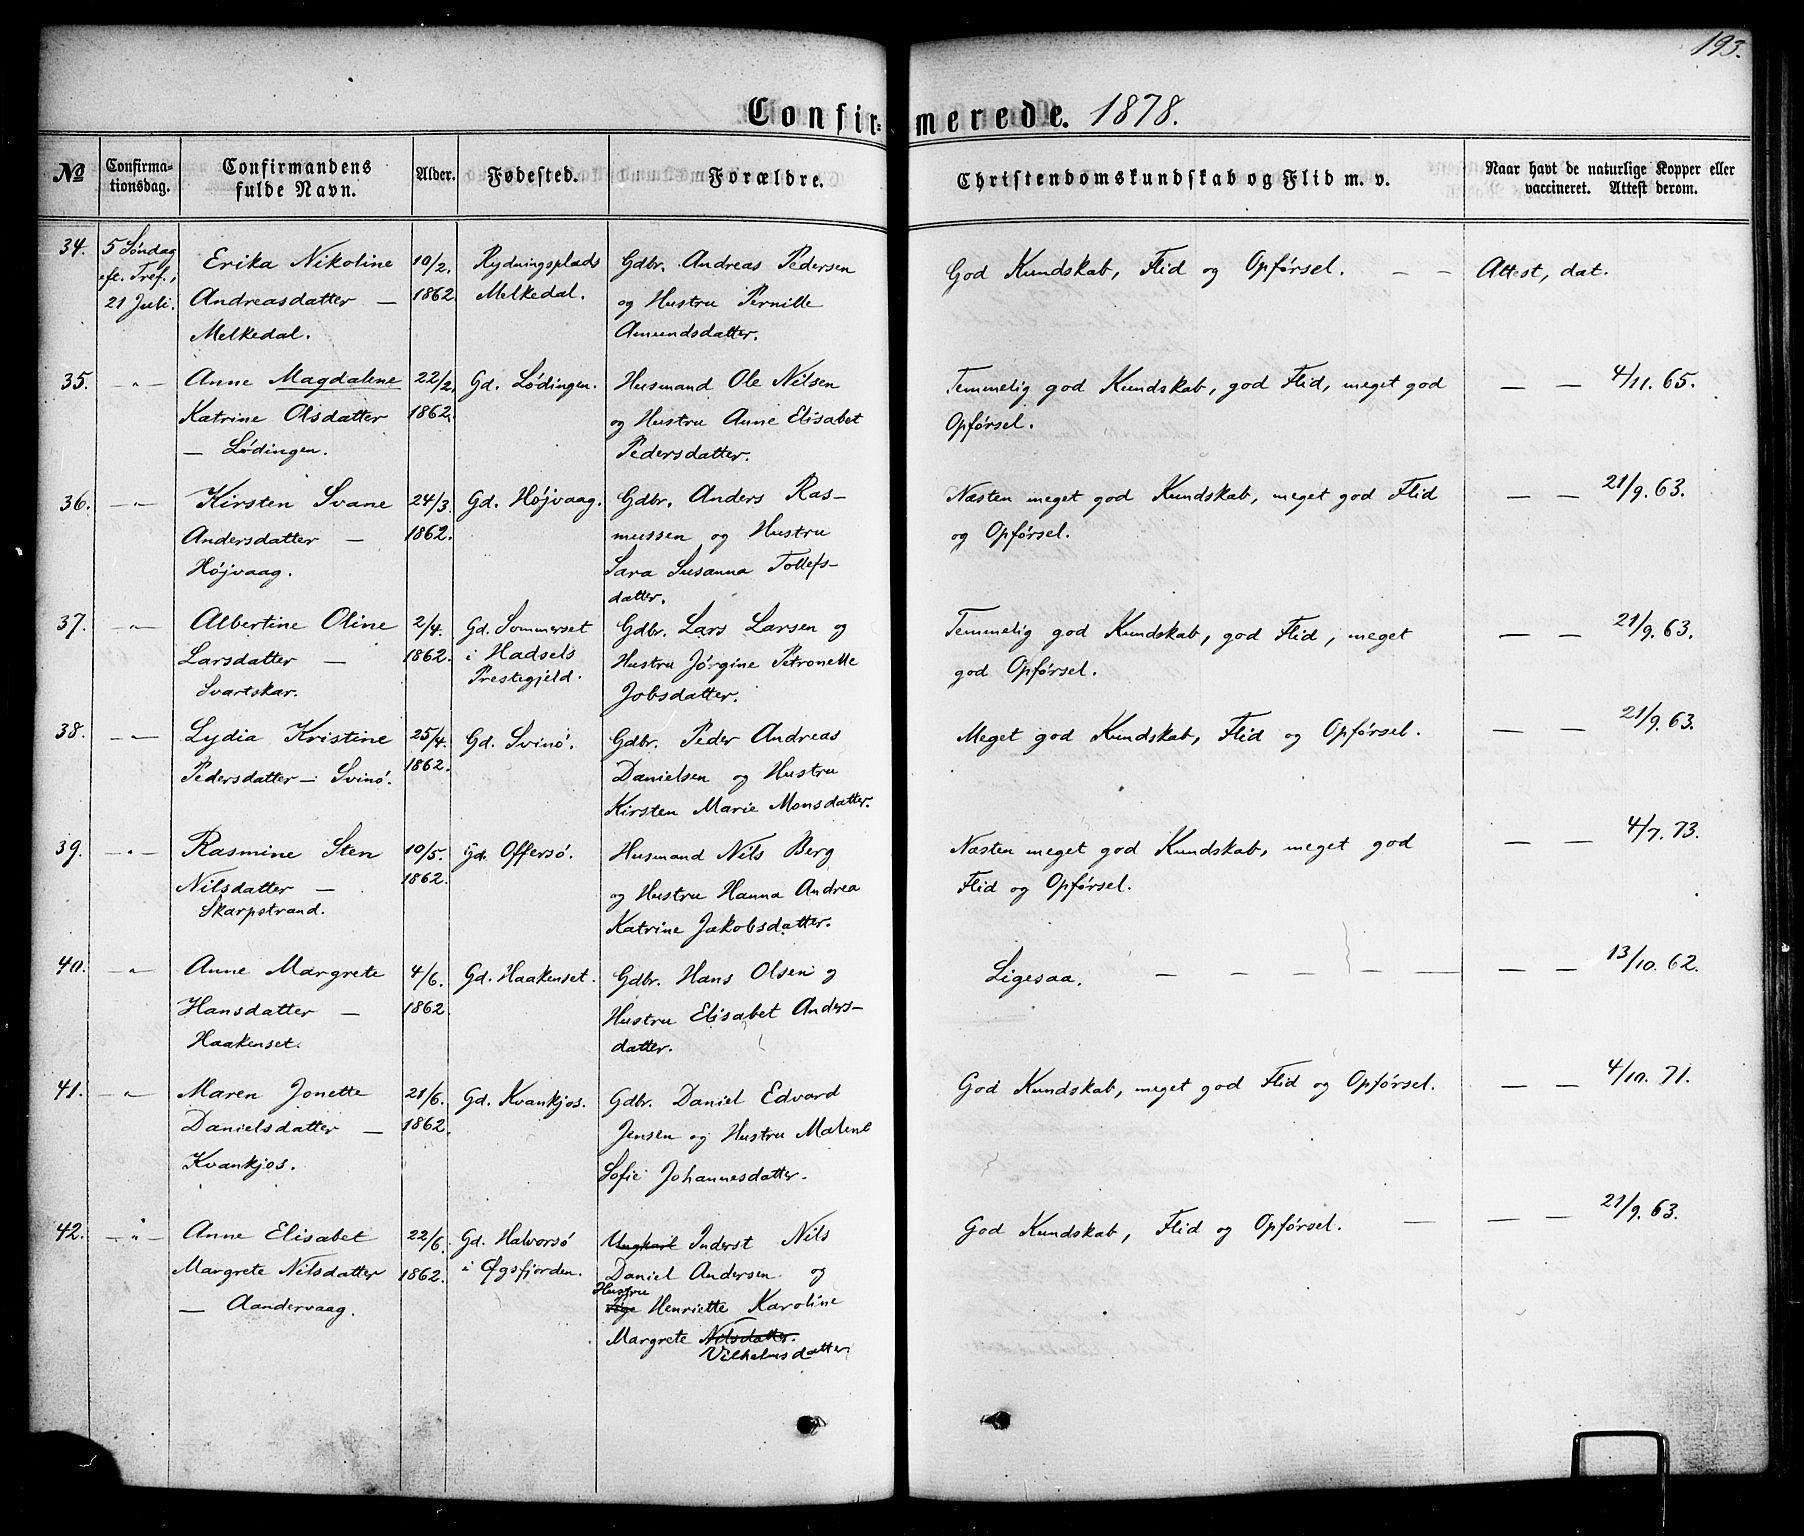 193.
Confir= merede. 1878.
No
Confirma=
tionsdag.
Confirmandens
fulde Navn.
Alder.
Fødested.
Forældre.
Christendomskundskab og Flid m. v.
Naar havt de naturlige Kopper eller
vaccineret. Attest derom.
34. 5 Søndag Erika Nikoline 10/2. Rydningsplads Gdbr. Andreas Pedersen God Kundskab, Flid og Opførsel. — — Attest, dat.
eft. Tref., Andreasdatter — 1862 Melkedal. og Hustru Pernille
21 Juli. Melkedal. Amundsdatter.
35. —"— Anne Magdalene 22/2. Gd. Lødingen. Husmand Ole Nilsen Temmelig god Kundskab, god Flid, meget god — — 4/11. 65.
Katrine Olsdatter 1862. og Hustru Anne Elisabet Opførsel.
— Lødingen. Pedersdatter.
36. —"— Kirsten Svane 24/3. Gd. Højvaag. Gdbr. Anders Ras- Næsten meget god Kundskab, meget god Flid — — 21/9. 63.
Andersdatter — 1862. mussen og Hustru og Opførsel.
Højvaag. Sara Susanna Tollefs-
datter.
37. —"— Albertine Oline 2/4. Gd. Sommerset Gdbr. Lars Larsen og Temmelig god Kundskab, god Flid, meget — — 21/9. 63.
Larsdatter — 1862. i Hadsels Hustru Jørgine Petronelle god Opførsel.
Svartskar. Prestegjeld. Jobsdatter.
38. —"— Lydia Kristine 25/4. Gd. Svinø. Gdbr. Peder Andreas Meget god Kundskab, Flid og Opførsel. — — 21/9. 63.
Pedersdatter — Svinø. 1862. Danielsen og Hustru
Kirsten Marie Monsdatter.
39. —"— Rasmine Sten 10/5. Gd. Offersø. Husmand Nils Berg Næsten meget god Kundskab, meget god — — 4/7. 73.
Nilsdatter — 1862. og Hustru Hanna Andrea Flid og Opførsel.
Skarpstrand. Katrine Jakobsdatter.
40. —"— Anne Margrete 4/6. Gd. Haakenset. Gdbr. Hans Olsen og Ligesaa. — — — — — — — 13/10. 62.
Hansdatter — 1862. Hustru Elisabet Anders-
Haakenset. datter.
41. —"— Maren Jonette 21/6. Gd. Kvankjos. Gdbr. Daniel Edvard God Kundskab, meget god Flid og Opførsel. — — 4/10. 71.
Danielsdatter — 1862. Jensen og Hustru Malene
Kvankjos. Sofie Johannesdatter.
42. —"— Anne Elisabet 22/6. Gd. Halvorsø Ungkarl Inderst Nils God Kundskab, Flid og Opførsel. — — — 21/9. 63.
Margrete Nilsdatter 1862. i Øgsfjorden. Daniel Andersen og
Hustru
— Aandervaag. Pige Henriette Karoline
Margrete Nilsdatter.
Vilhelmsdatter.